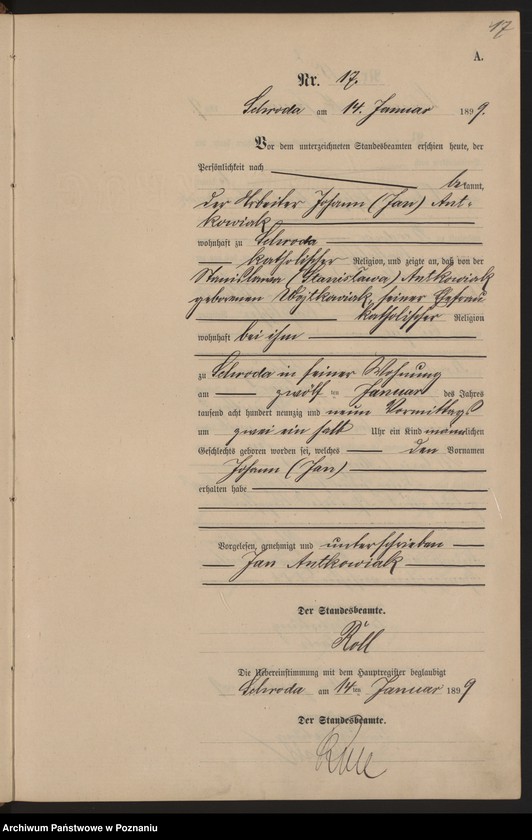 17
A.
Nr. 17.
Schroda am 14. Januar 1899.
Vor dem unterzeichneten Standesbeamten erschien heute, der
Persönlichkeit nach
bekannt,
der Arbeiter Johann (Jan) Ant-
kowiak
wohnhaft zu Schroda
katholischer Religion, und zeigte an, daß von der
Stanislawa (Stanisława) Antkowiak
geborenen Wojtkowiak, seiner Ehefrau
katholischer Religion
wohnhaft bei ihm
zu Schroda in seiner Wohnung
am zwölf ten Januar des Jahres
tausend acht hundert neunzig und neun Vormittags
um zwei ein halb Uhr ein Kind männlichen
Geschlechts geboren worden sei, welches den Vornamen
Johann (Jan)
erhalten habe
Vorgelesen, genehmigt und unterschrieben
Jan Antkowiak
Der Standesbeamte.
Röll
Die Uebereinstimmung mit dem Hauptregister beglaubigt
Schroda am 14ten Januar 1899
Der Standesbeamte.
Röll
Archiwum Państwowe w Poznaniu